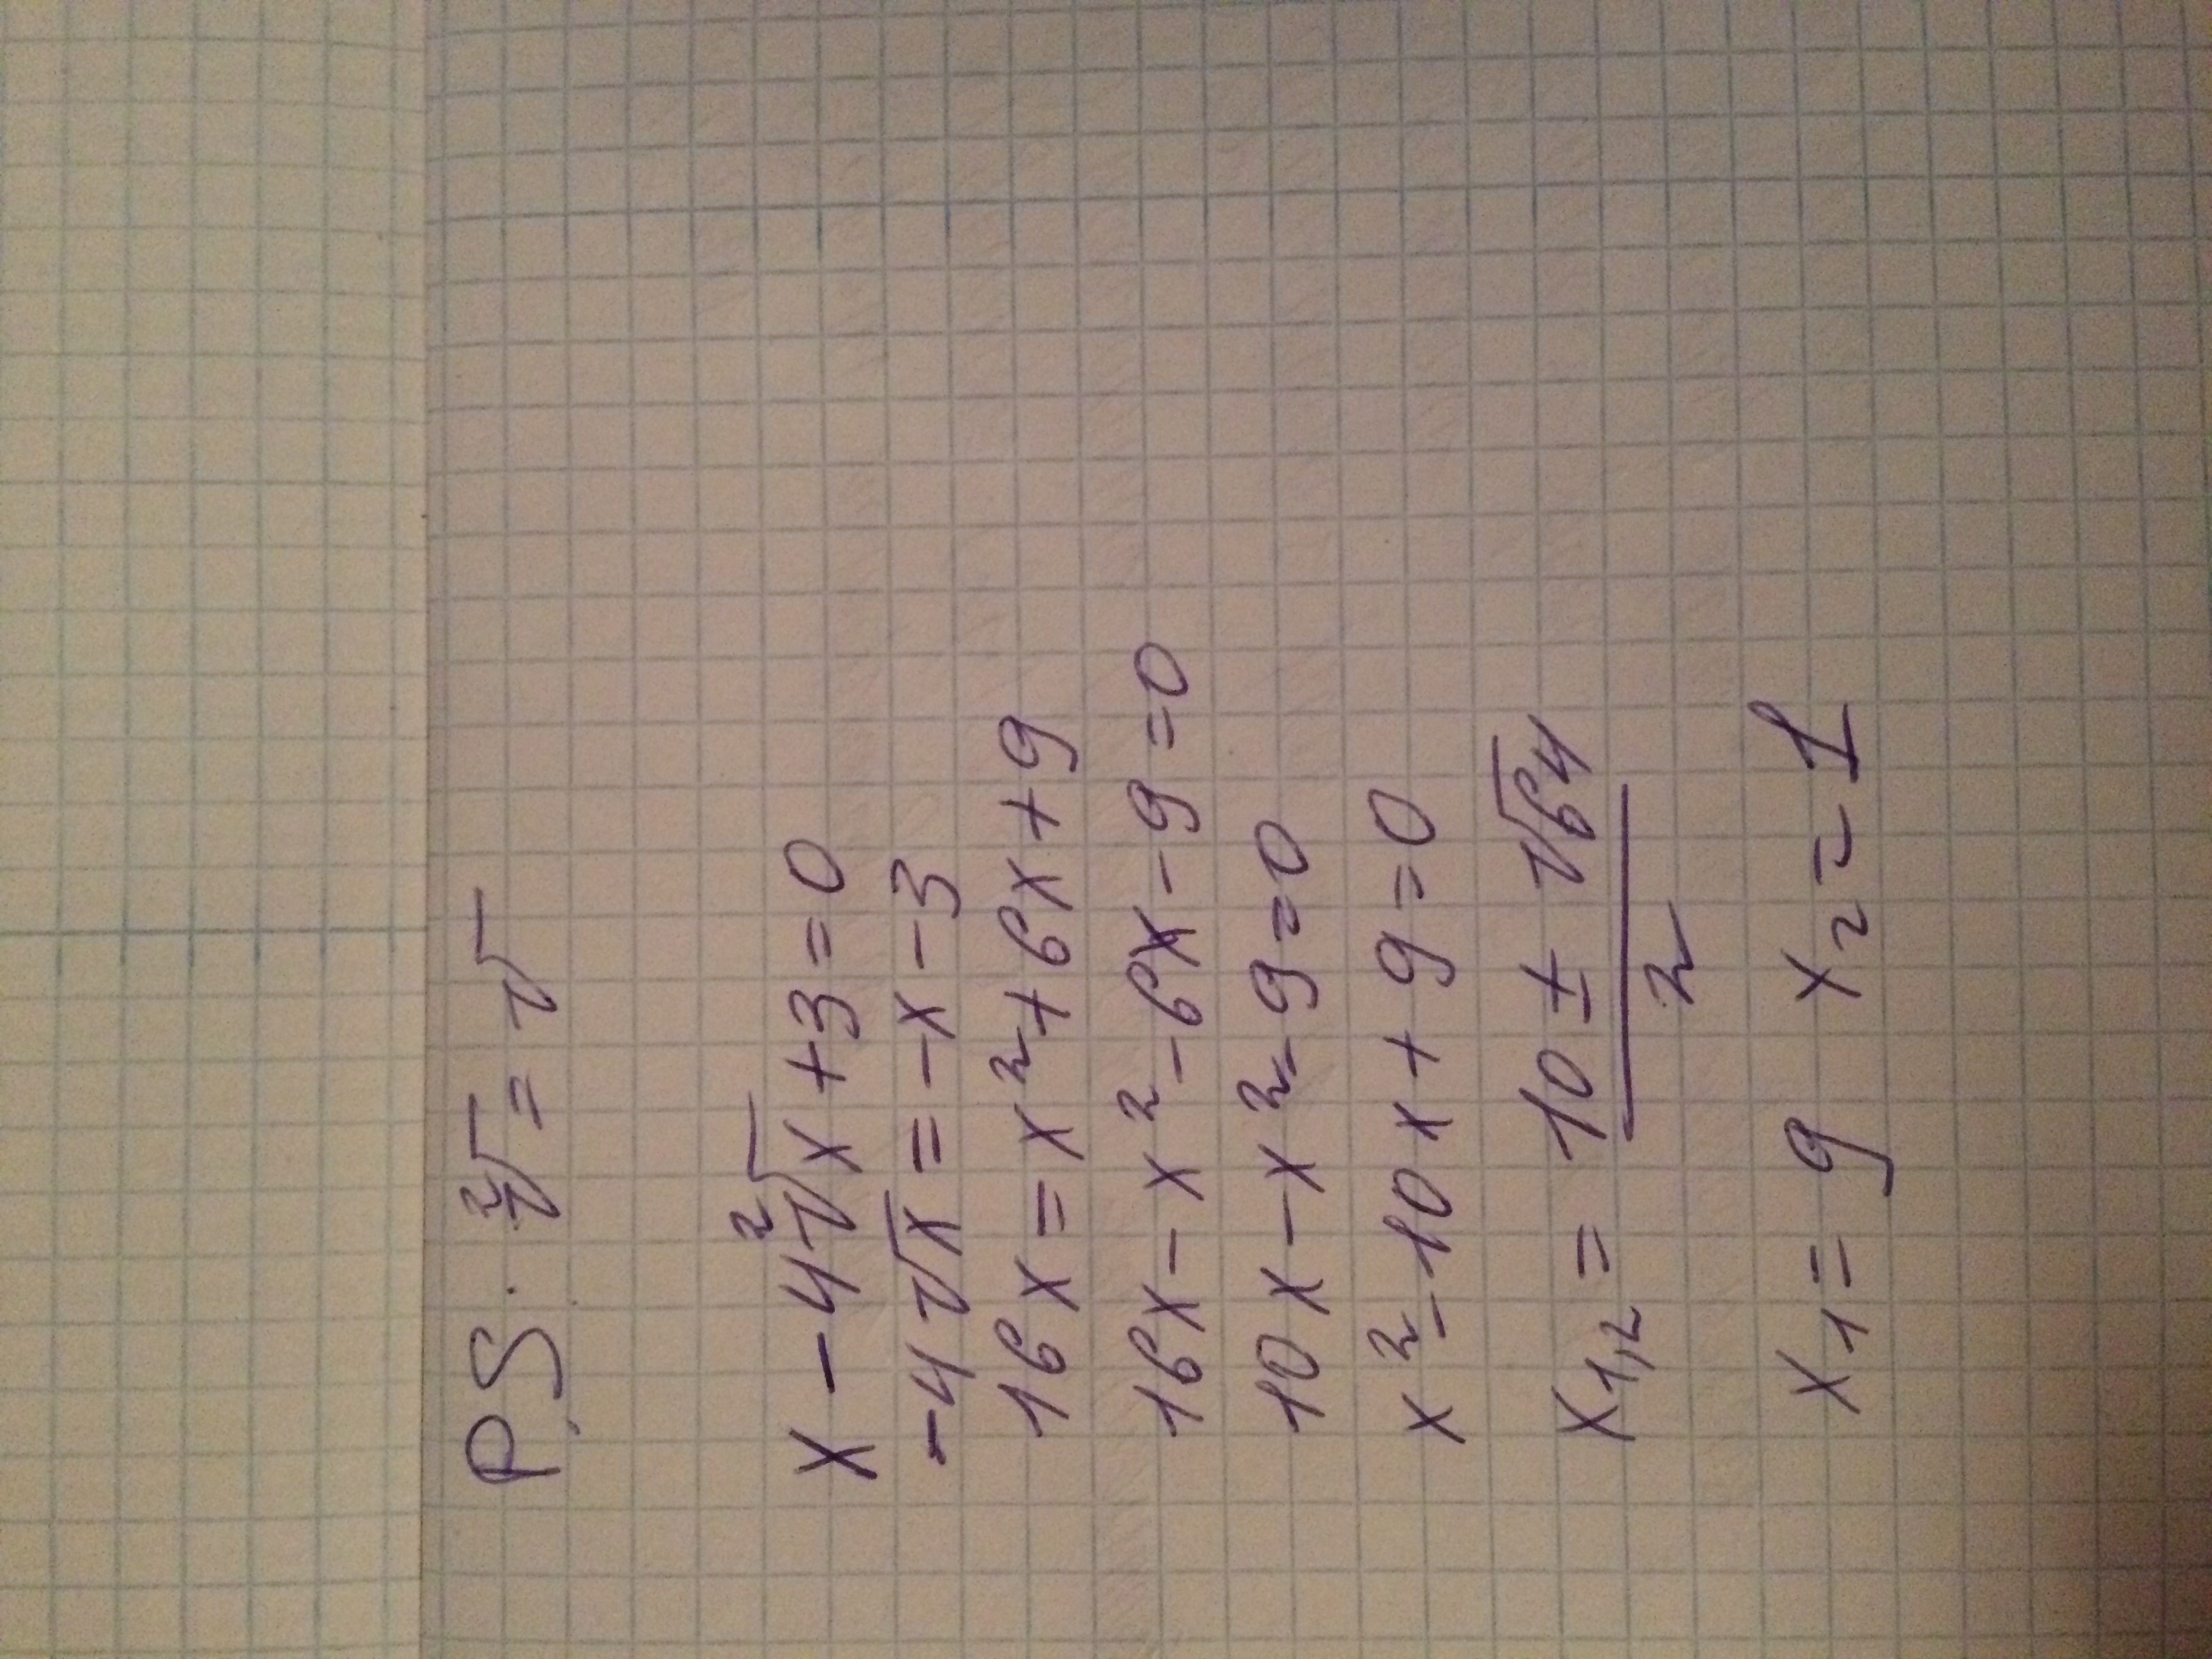 P.S. ²√ = √
x - 4 ²√x + 3 = 0
-4√x = -x - 3
16x = x² + 6x + 9
16x - x² - 6x - 9 = 0
10x - x² - 9 = 0
x² - 10x + 9 = 0
x₁,₂ = (10 ± √64) / 2
x₁ = 9 x₂ = 1